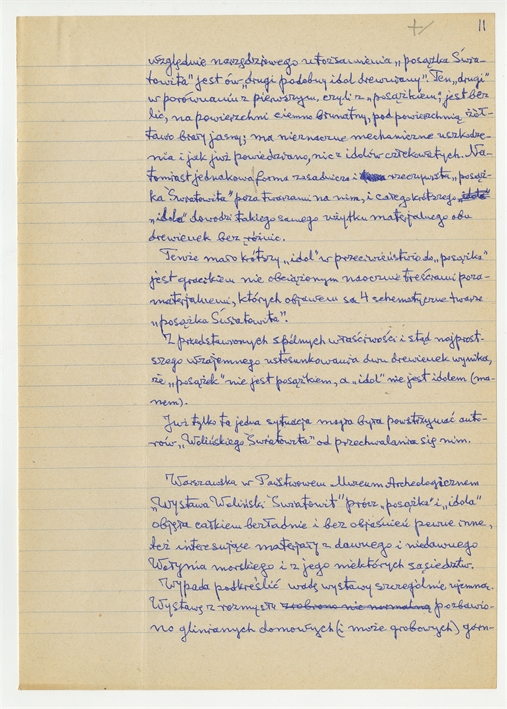 11
względnie narzędziowego utożsamienia „posążka Świa-
towita" jest ów „drugi podobny idol drewniany". Ten „drugi"
w porównaniu z pierwszym, czyli z „posążkiem", jest bez
lic, na powierzchni ciemno brunatny, pod powierzchnią żół-
tawo biały jasny; ma nieznaczne mechaniczne uszkodze-
nia i jak już powiedziano, nic z idolów człekowatych. Na-
tomiast jednakowa forma zasadnicza i rzeczywista „posąż-
ka Światowita" poza twarzami na nim, i całego krótszego
„idola" dowodzi takiego samego użytku materjalnego obu
drewienek bez różnic.
Tenże mało krótszy „idol" w przeciwieństwie do „posążka"
jest gracikiem nie obciążonym naocznie treściami poza-
materjalnemi, których objawem są 4 schematyczne twarze
„posążka Światowita".
Z przedstawionych spólnych właściwości i stąd najprost-
szego wzajemnego ustosunkowania dwu drewienek wynika,
że „posążek" nie jest posążkiem, a „idol" nie jest idolem (ma-
nem).
Już tylko ta jedna sytuacja mogła była powstrzymać auto-
rów „Wolińskiego Światowita" od przechwalania się nim.
Warszawska w Państwowem Muzeum Archeologicznem
„Wystawa Woliński Światowit" prócz „posążka" i „idola"
objęła całkiem bezładnie i bez objaśnień pewne inne,
też interesujące materjały z dawnego i niedawnego
Wolynia morskiego i z jego niektórych sąsiedztw.
Wypada podkreślić wadę wystawy szczególnie ujemną.
Wystawę z rozmysłu zrobiono nie normalną pozbawio-
no glinianych domowych (i może grobowych) garn-